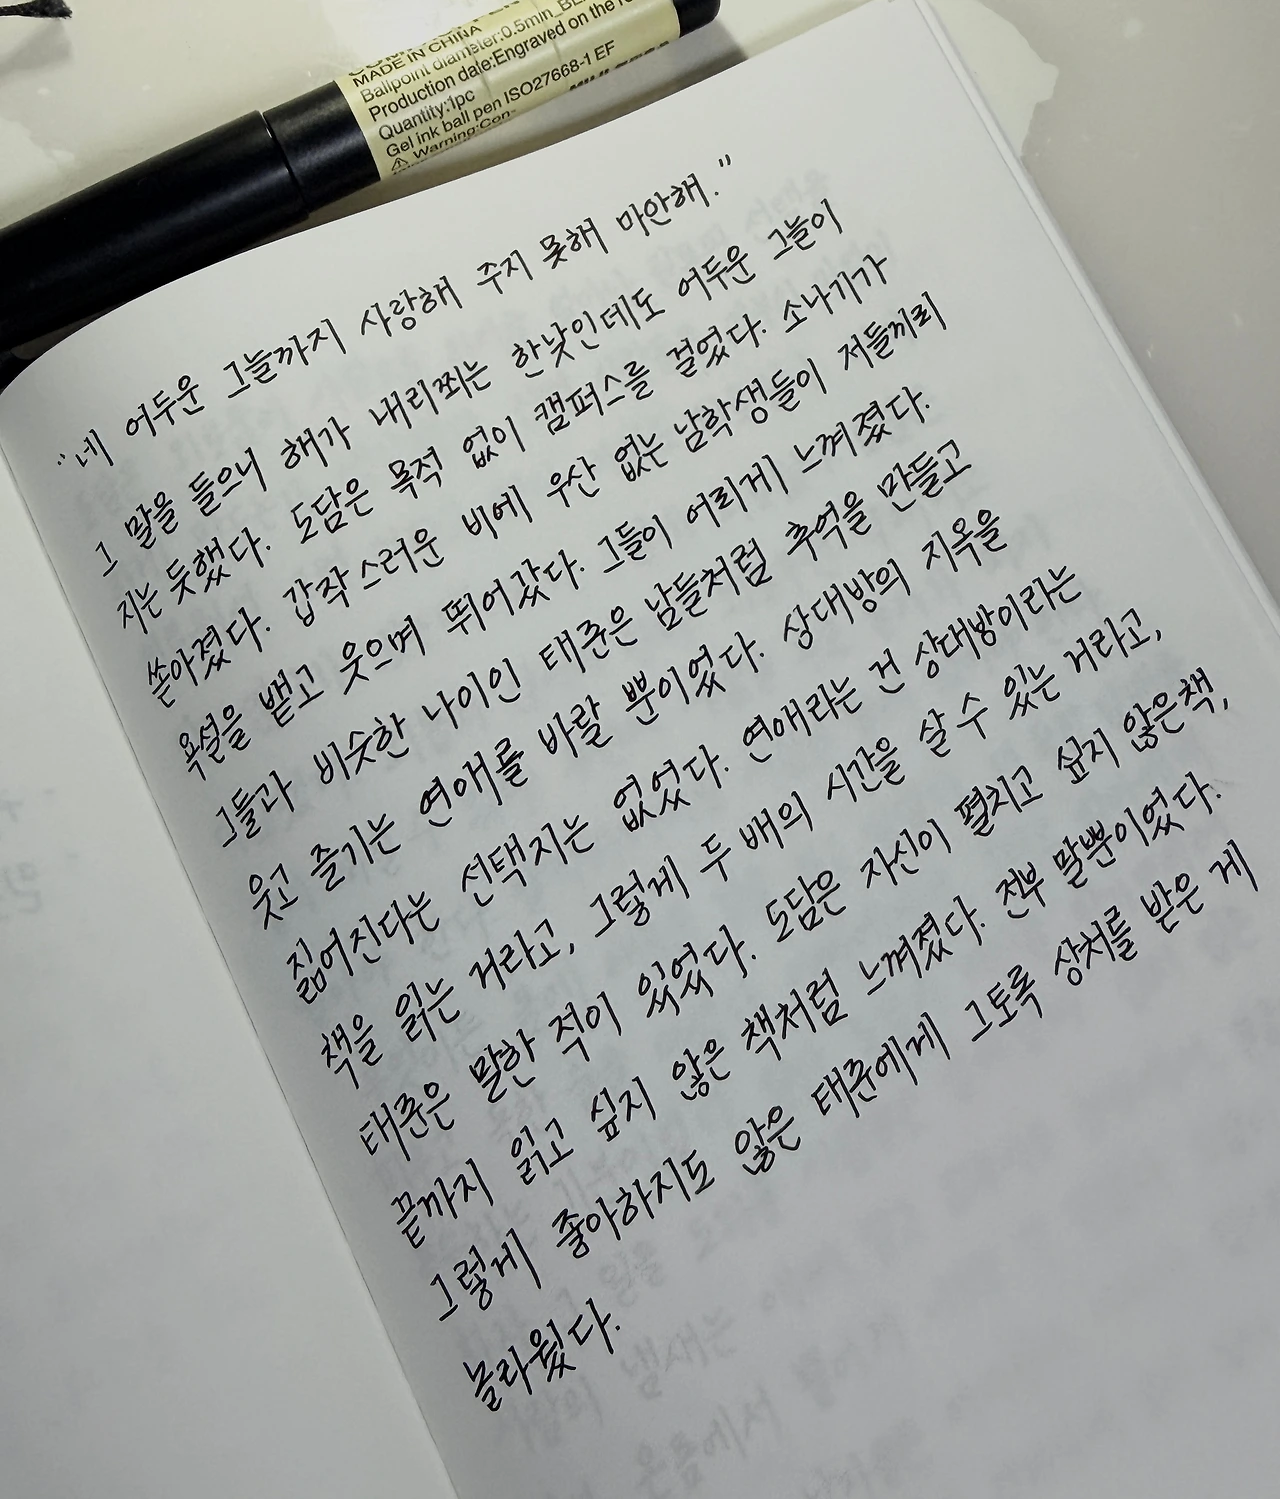 MADE IN CHINA
Ballpoint diameter:0.5mm_BL
Production date:Engraved on the
Quantity:1pc
Gel ink ball pen ISO27668-1 EF
Warning:Con-
"네 어두운 그늘까지 사랑해 주지 못해 미안해."
그 말을 들으니 해가 내리쬐는 한낮인데도 어두운 그늘이
지는 듯했다. 도담은 목적 없이 캠퍼스를 걸었다. 소나기가
쏟아졌다. 갑작스러운 비에 우산 없는 남학생들이 저들끼리
욕설을 뱉고 웃으며 뛰어갔다. 그들이 어리게 느껴졌다.
그들과 비슷한 나이인 태준은 남들처럼 추억을 만들고
웃고 즐기는 연애를 바랄 뿐이었다. 상대방의 지옥을
짊어진다는 선택지는 없었다. 연애라는 건 상대방이라는
책을 읽는 거라고, 그렇게 두 배의 시간을 살 수 있는 거라고,
태준은 말한 적이 있었다. 도담은 자신이 펼치고 싶지 않은 책,
끝까지 읽고 싶지 않은 책처럼 느껴졌다. 전부 말뿐이었다.
그렇게 좋아하지도 않은 태준에게 그토록 상처를 받은 게
놀라웠다.